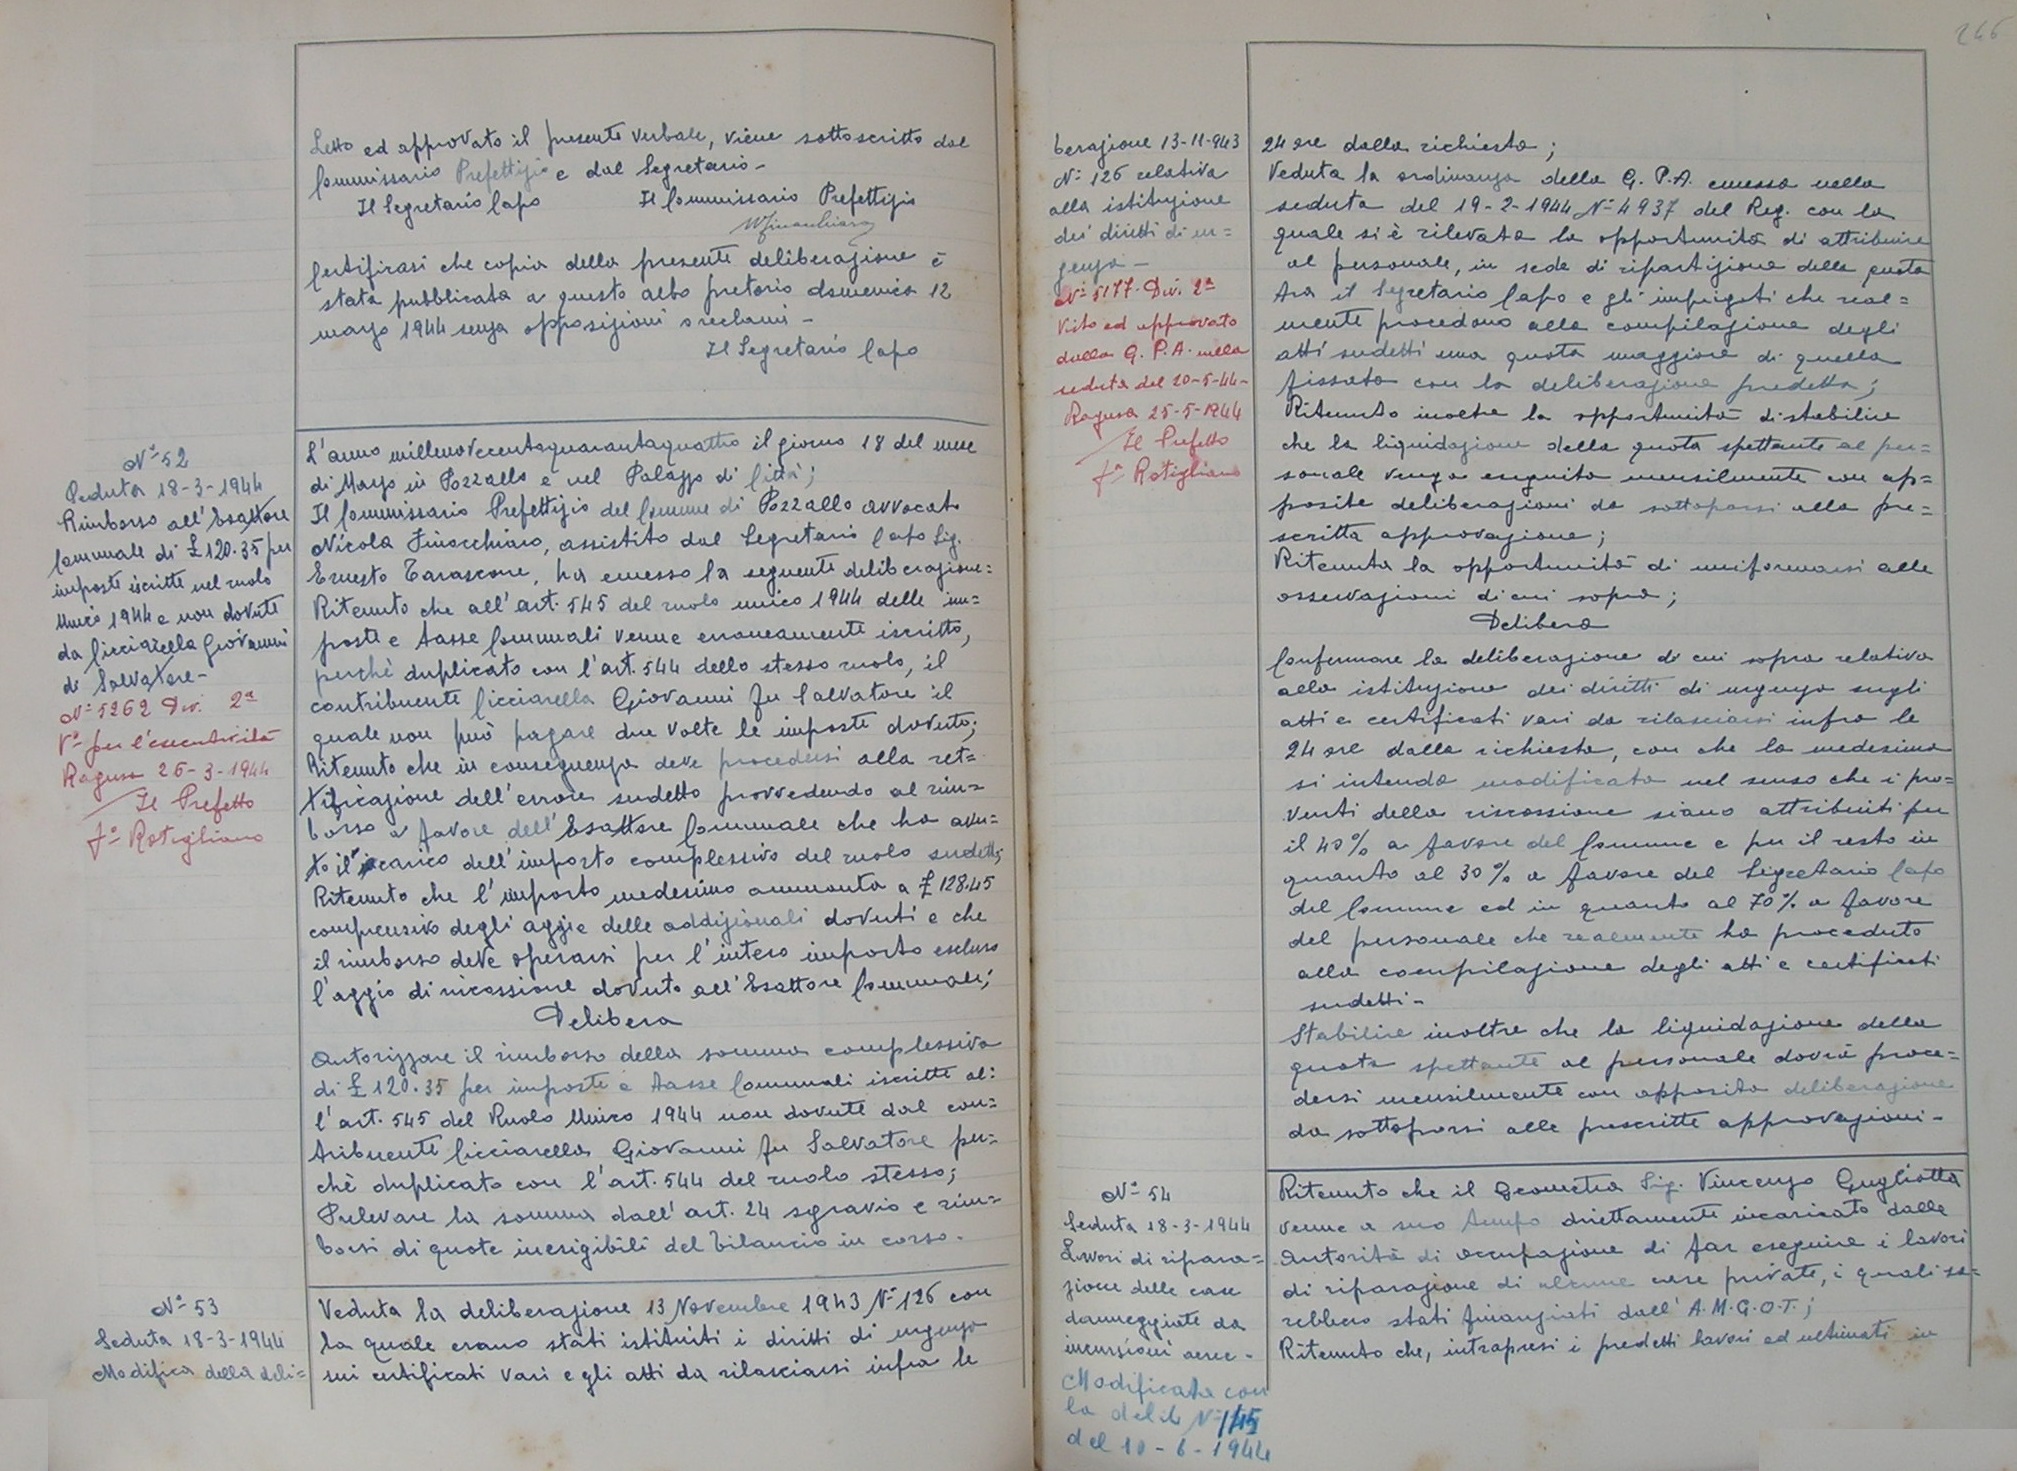 Letto ed approvato il presente verbale, viene sottoscritto dal
Commissario Prefettizio e dal Segretario-
Il Segretario Capo Il Commissario Prefettizio
Certificasi che copia della presente deliberazione è
stata pubblicata a questo albo pretorio domenica 12
marzo 1944 senza opposizioni o reclami-
Il Segretario Capo
N° 52
Seduta 18-3-1944
Rimborso all'Esattore
Comunale di £ 120.35 per
imposte iscritte nel ruolo
Unico 1944 e non dovute
da Cicciarella Giovanni
di Salvatore-
N° 5262 Div. 2ª
V° per l'esecutività
Ragusa 26-3-1944
Il Prefetto
f° Rotigliano
L'anno millenovecentoquarantaquattro il giorno 18 del mese
di Marzo in Pozzallo e nel Palazzo di Città;
Il Commissario Prefettizio del Comune di Pozzallo avvocato
Nicola Finocchiaro, assistito dal Segretario Capo Sig.
Ernesto Tarascone, ha emesso la seguente deliberazione:
Ritenuto che all'art. 545 del ruolo unico 1944 delle im=
poste e tasse Comunali venne erroneamente iscritto,
perchè duplicato con l'art. 544 dello stesso ruolo, il
contribuente Cicciarella Giovanni fu Salvatore il
quale non può pagare due volte le imposte dovute;
Ritenuto che in conseguenza deve procedersi alla ret=
tificazione dell'errore sudetto provvedendo al rim=
borso a favore dell'Esattore Comunale che ha avu=
to il carico dell'importo complessivo del ruolo sudetto;
Ritenuto che l'importo medesimo ammonta a £ 128.45
comprensivo degli aggi e delle addizionali dovuti e che
il rimborso deve operarsi per l'intero importo escluso
l'aggio di riscossione dovuto all'Esattore Comunale;
Delibera
Autorizzare il rimborso della somma complessiva
di £ 120.35 per imposte e tasse Comunali iscritte al=
l'art. 545 del Ruolo Unico 1944 non dovute dal con=
tribuente Cicciarella Giovanni fu Salvatore per=
chè duplicato con l'art. 544 del ruolo stesso;
Prelevare la somma dall'art. 24 sgravio e rim=
borsi di quote inesigibili del bilancio in corso-
N° 53
Seduta 18-3-1944
Modifica della deli=
Veduta la deliberazione 13 Novembre 1943 N° 126 con
la quale erano stati istituiti i diritti di urgenza
sui certificati vari e gli atti da rilasciarsi infra le
246
berazione 13-11-943
N° 126 relativa
alla istituzione
dei diritti di ur=
genza-
N° 5177 Div. 2ª
Visto ed approvato
dalla G. P. A. nella
seduta del 20-5-44-
Ragusa 25-5-1944
Il Prefetto
f° Rotigliano
24 ore dalla richiesta;
Veduta la ordinanza della G. P. A. emessa nella
seduta del 19-2-1944 N° 4937 del Reg. con la
quale si è rilevata la opportunità di attribuire
al personale, in sede di ripartizione della quota
tra il Segretario Capo e gli impiegati che real=
mente procedono alla compilazione degli
atti sudetti una quota maggiore di quella
fissata con la deliberazione predetta;
Ritenuto inoltre la opportunità di stabilire
che la liquidazione della quota spettante al per=
sonale venga eseguita mensilmente con ap=
posite deliberazioni da sottoporsi alla pre=
scritta approvazione;
Ritenuta la opportunità di uniformarsi alle
osservazioni di cui sopra;
Delibera
Confermare la deliberazione di cui sopra relativa
alla istituzione dei diritti di urgenza sugli
atti e certificati vari da rilasciarsi infra le
24 ore dalla richiesta, con che la medesima
si intenda modificata nel senso che i pro=
venti della riscossione siano attribuiti per
il 40% a favore del Comune e per il resto in
quanto al 30% a favore del Segretario Capo
del Comune ed in quanto al 70% a favore
del personale che realmente ha proceduto
alla compilazione degli atti e certificati
sudetti-
Stabilire inoltre che la liquidazione della
quota spettante al personale dovrà proce=
dersi mensilmente con apposita deliberazione
da sottoporsi alle prescritte approvazioni-
N° 54
Seduta 18-3-1944
Lavori di ripara=
zione delle case
danneggiate da
incursioni aeree-
Modificata con
la delib N° 145
del 10-6-1944
Ritenuto che il Geometra Sig. Vincenzo Gugliotta
venne a suo tempo direttamente incaricato dalle
Autorità di occupazione di far eseguire i lavori
di riparazione di alcune case private, i quali sa=
rebbero stati finanziati dall'A.M.G.O.T.;
Ritenuto che, intrapresi i predetti lavori ed ultimati in